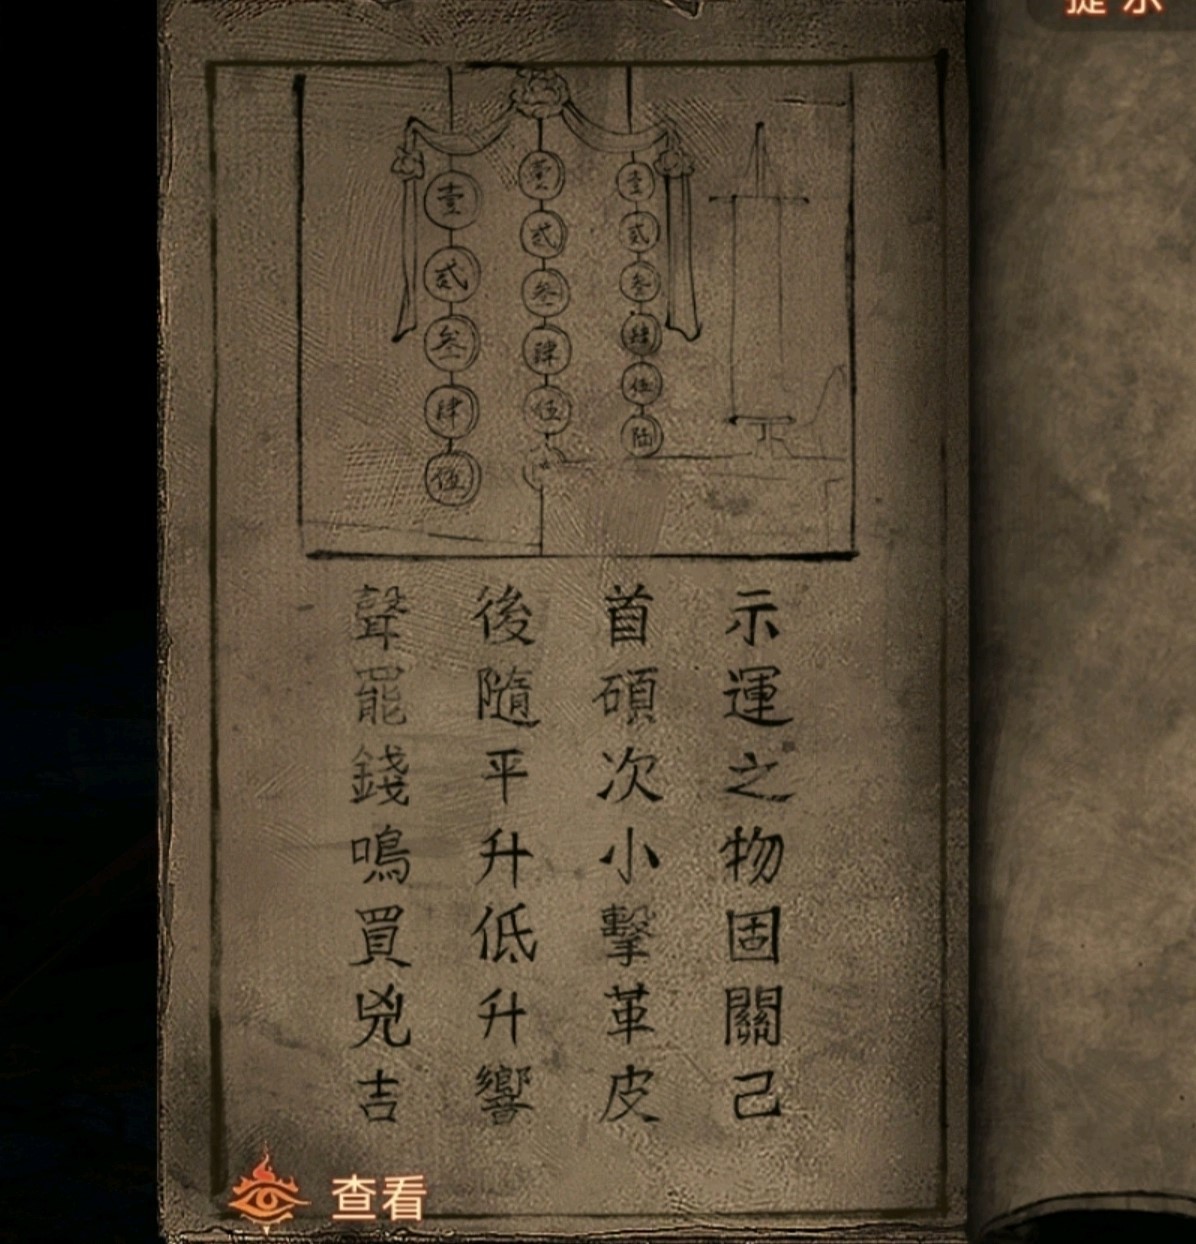 提示
壹
貳
叁
肆
伍
壹
貳
叁
肆
伍
壹
貳
叁
肆
伍
陆
示運之物固關己
首碩次小擊革皮
後隨平升低升響
聲罷錢鳴買兇吉
查看